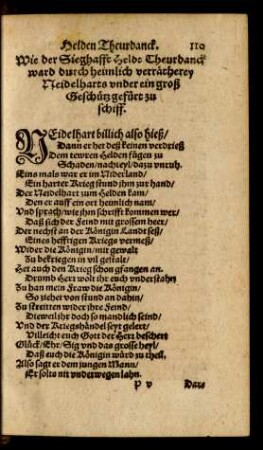 Helden Theurdanck. 110
Wie der Sieghafft Helde Theurdanck
ward durch heimlich verrätherey
Neidelharts vnder ein groß
Geschütz gefürt zu
schiff.
NEidelhart billich also hieß/
Dann er het deß keinen verdrieß
Dem tewren Helden fügen zu
Schaden/nachteyl/dazu vnruh.
Eins mals war er im Niderland/
Ein harter Krieg stund ihm zur hand/
Der Neidelhart zum Helden kam/
Den er auff ein ort heimlich nam/
Vnd sprach/wie ihm schrifft kommen wer/
Daß sich der Feind mit grossem heer/
Der nechst an der Königin Landt seß/
Eines hefftigen Kriegs vermeß/
Wider die Königin/mit gewalt
Zu bekriegen in vil gestalt/
Het auch den Krieg schon gfangen an.
Drumb Herr wolt ihr euch vnderstahn
Zu han mein Fraw die Königin/
So ziehet von stund an dahin/
Zu streitten wider ihre Feind/
Dieweil ihr doch so mandlich seind/
Vnd der Kriegshändel seyt gelert/
Villeicht euch Gott der Herr beschert
Glück/Ehr/Sig vnd das grosse heyl/
Daß euch die Königin würd zu theil.
Also sagt er dem jungen Mann/
Er solts nit vnderwegen lahn.
P v Dars